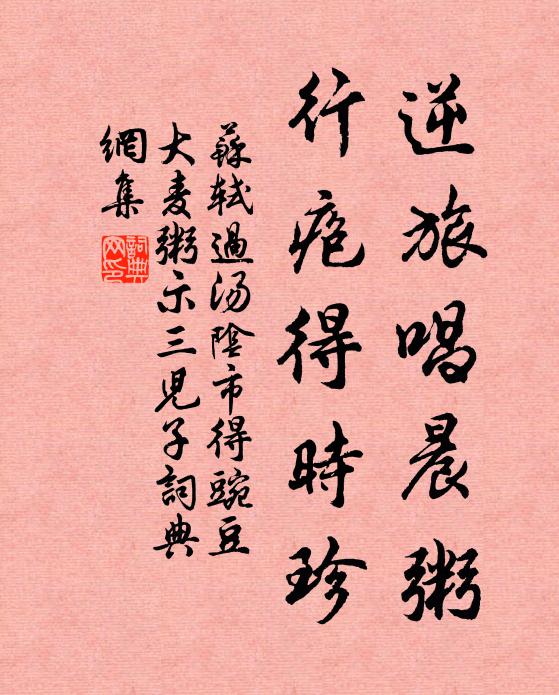 逆旅唱晨粥
行疱得時珍
蘇軾過湯陰市得豌豆
大麦粥示三児子詞典
網集
詞典
网印